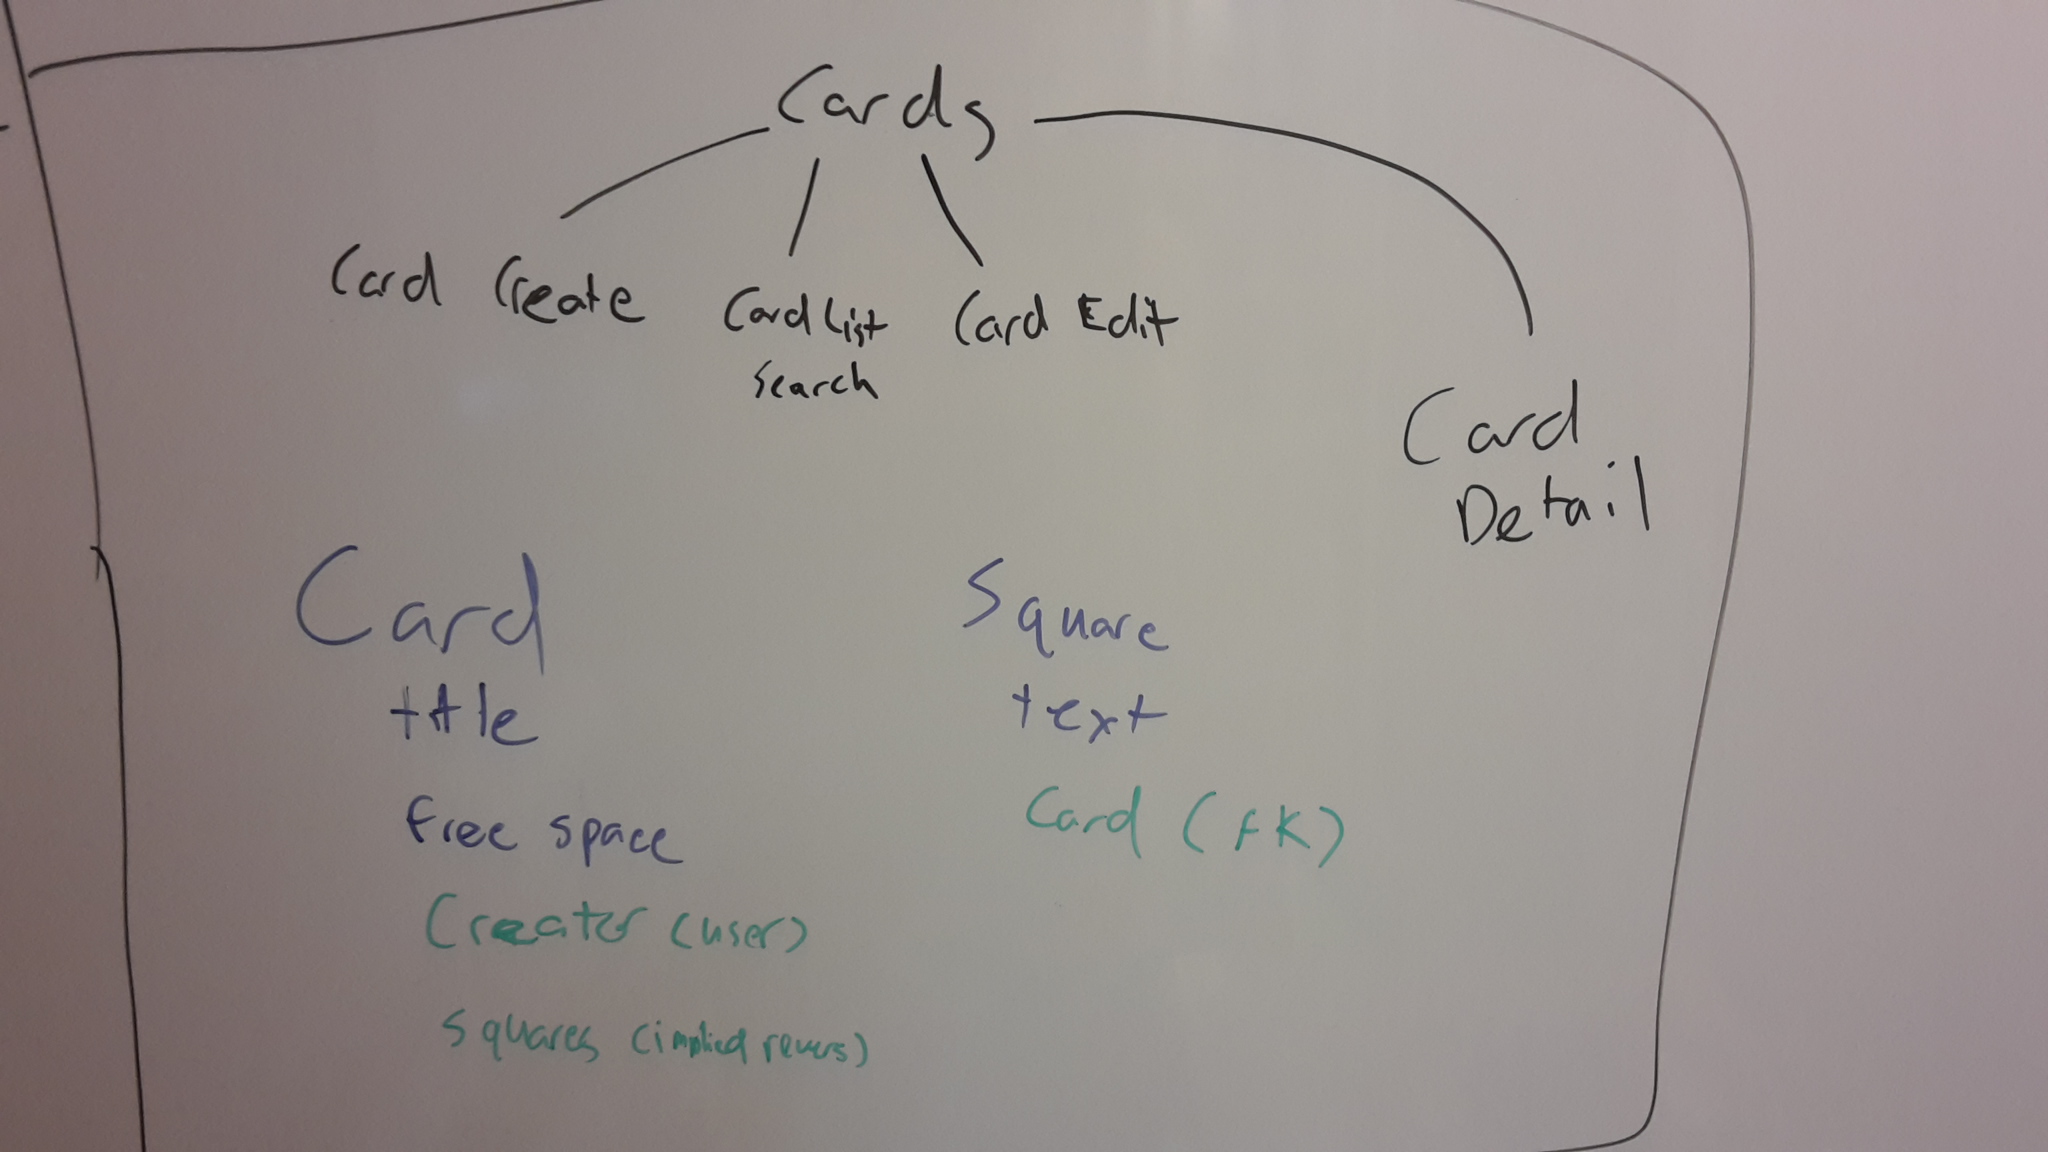 Cards
Card Create
Card List
Search
Card Edit
Card
Detail
Card
title
Free space
Creator (user)
Squares (implied revers)
Square
text
Card (FK)